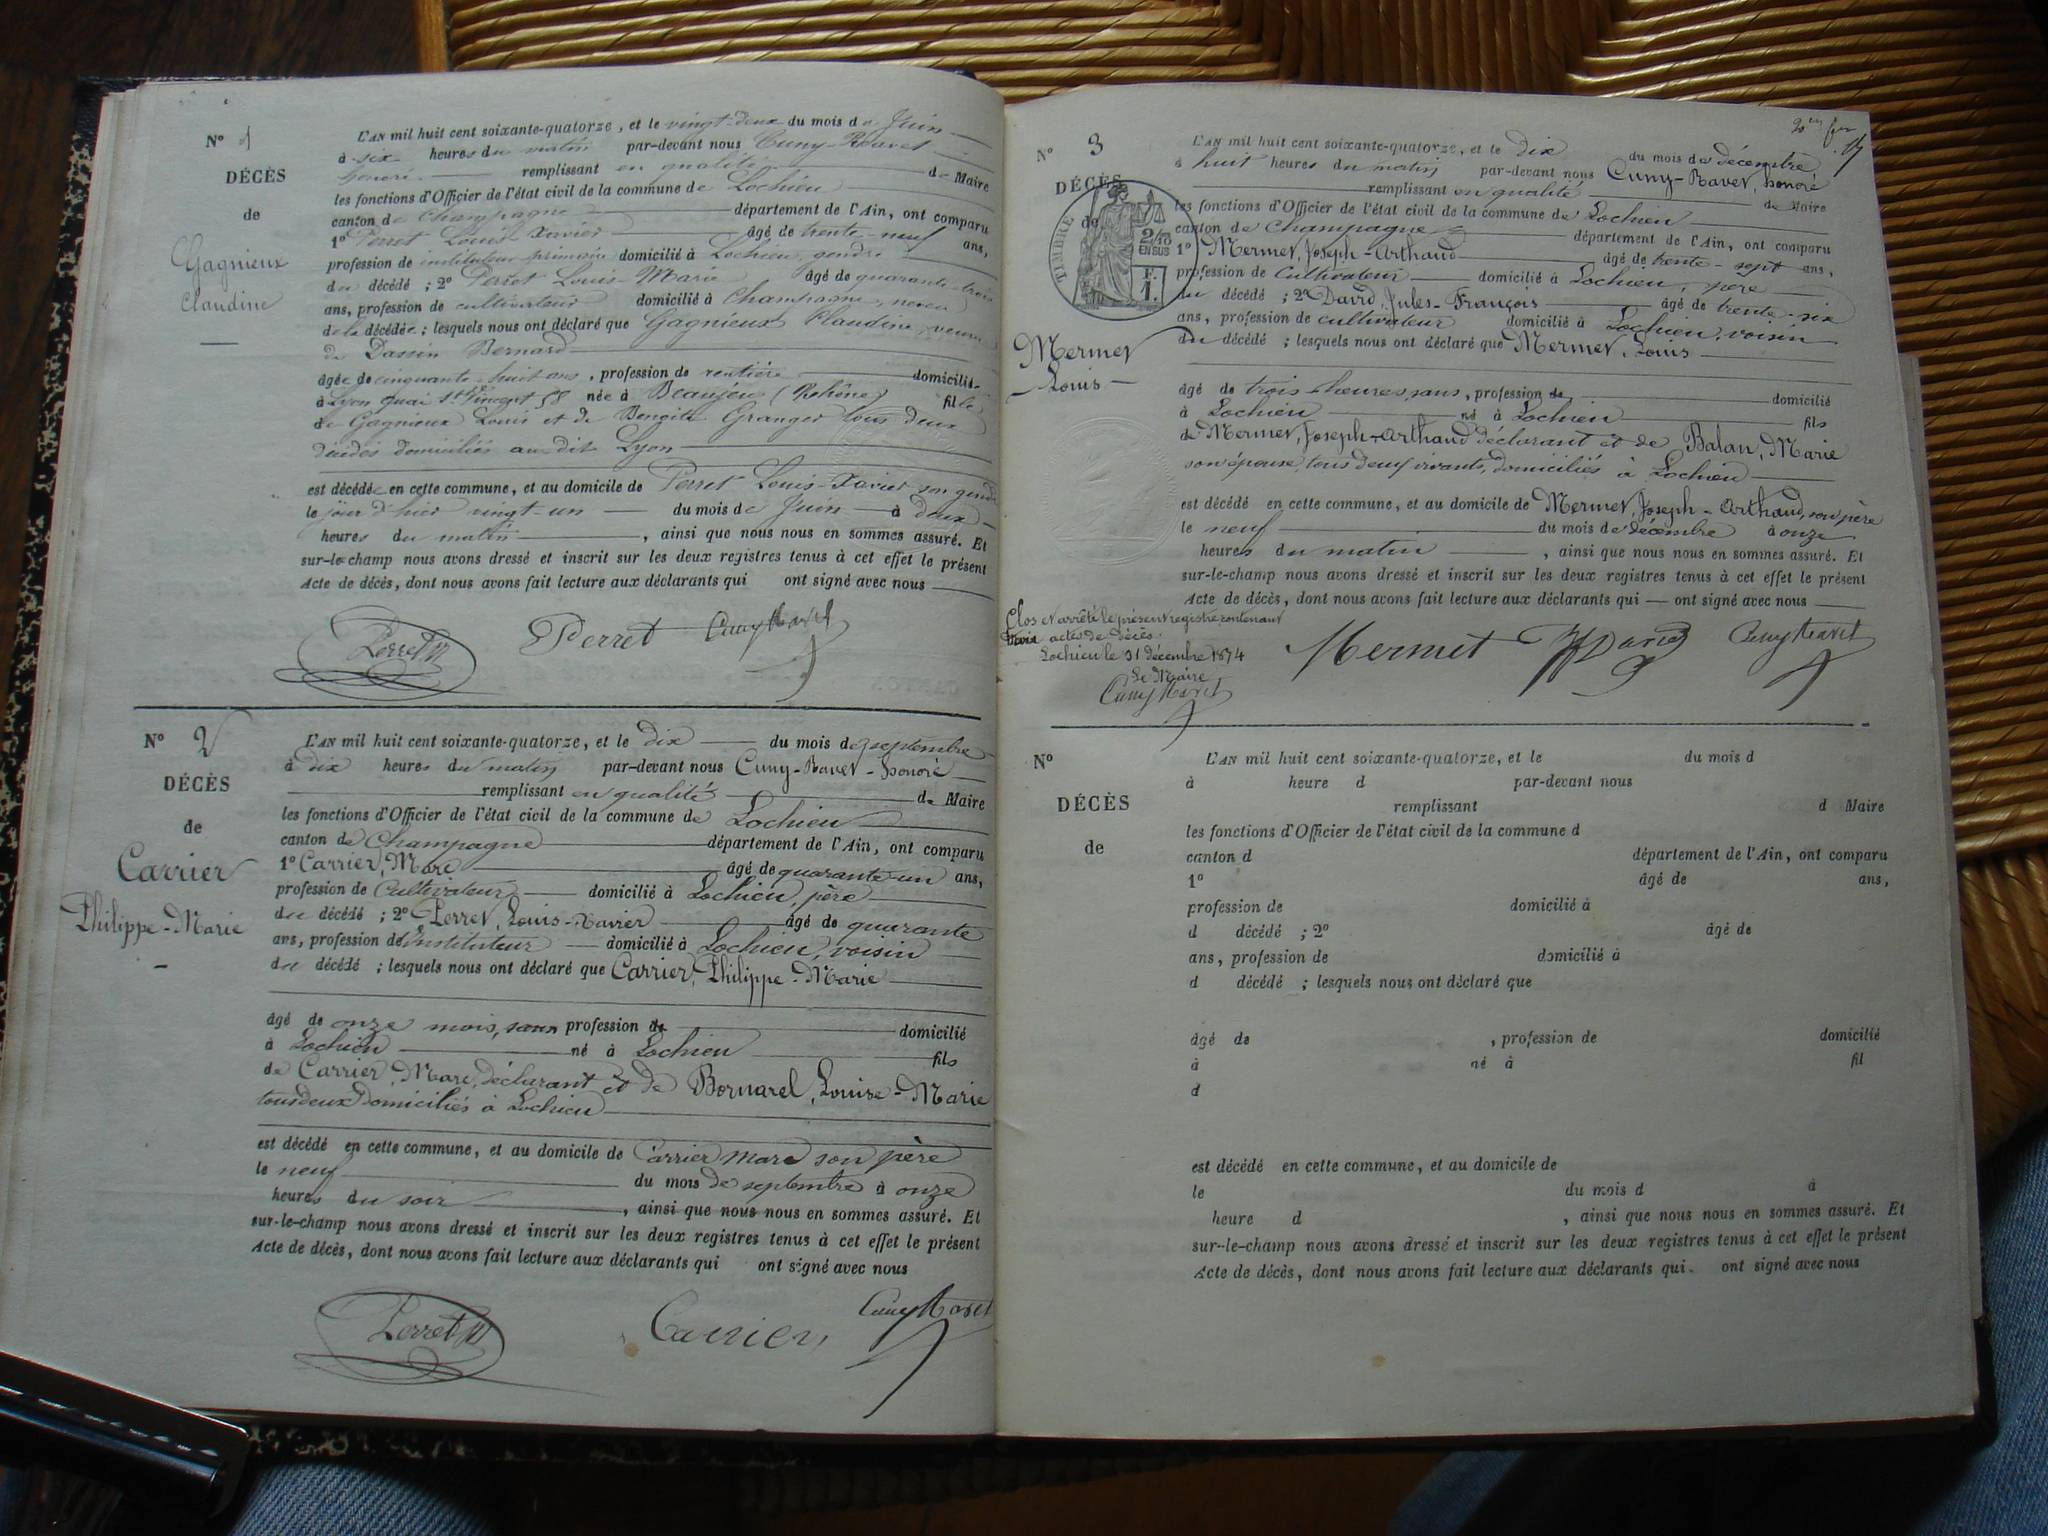 N° 1
DÉCÈS
de
Gagnieux
Claudine
L'AN mil huit cent soixante-quatorze, et le vingt-deux du mois de Juin
à six heures du matin par-devant nous Cuny-Ravet
honoré remplissant en qualité de Maire
les fonctions d'Officier de l'état civil de la commune de Lochieu
canton de Champagne département de l'Ain, ont comparu
1° Perret Louis-Xavier âgé de trente-neuf ans,
profession de instituteur primaire domicilié à Lochieu, gendre
du décédé ; 2° Perret Louis-Marie âgé de quarante-trois
ans, profession de cultivateur domicilié à Champagne, neveu
de la décédée ; lesquels nous ont déclaré que Gagnieux Claudine, veuve
de Dassin Bernard
âgée de cinquante-huit ans, profession de rentière domiciliée
à Lyon quai St Vincent 58 née à Beaujeu (Rhône) fille
de Gagnieux Louis et de Benoite Granger tous deux
décédés domiciliés au dit Lyon
est décédée en cette commune, et au domicile de Perret Louis-Xavier son gendre
le jour d'hier vingt-un du mois de Juin à deux
heures du matin, ainsi que nous nous en sommes assuré. Et
sur-le-champ nous avons dressé et inscrit sur les deux registres tenus à cet effet le présent
Acte de décès, dont nous avons fait lecture aux déclarants qui ont signé avec nous
Perret Perret Cuny Ravet
N° 2
DÉCÈS
de
Carrier
Philippe-Marie
L'AN mil huit cent soixante-quatorze, et le dix du mois de septembre
à dix heures du matin par-devant nous Cuny-Ravet-honoré
remplissant en qualité de Maire
les fonctions d'Officier de l'état civil de la commune de Lochieu
canton de Champagne département de l'Ain, ont comparu
1° Carrier, Marc âgé de quarante-un ans,
profession de Cultivateur domicilié à Lochieu, père
du décédé ; 2° Perret, Louis-Xavier âgé de quarante
ans, profession d'Instituteur domicilié à Lochieu, voisin
du décédé ; lesquels nous ont déclaré que Carrier, Philippe-Marie
âgé de onze mois, sans profession de domicilié
à Lochieu né à Lochieu fils
de Carrier, Marc, déclarant et de Bornarel, Louise-Marie
tous deux domiciliés à Lochieu
est décédé en cette commune, et au domicile de Carrier Marc son père
le neuf du mois de septembre à onze
heures du soir, ainsi que nous nous en sommes assuré. Et
sur-le-champ nous avons dressé et inscrit sur les deux registres tenus à cet effet le présent
Acte de décès, dont nous avons fait lecture aux déclarants qui ont signé avec nous
Perret Carrier Cuny Ravet
N° 3
DÉCÈS
de
TIMBRE
2/10
EN SUS
F.
1.
Mermet
Louis
L'AN mil huit cent soixante-quatorze, et le dix du mois de décembre
à huit heures du matin par-devant nous Cuny-Ravet, honoré
remplissant en qualité de Maire
les fonctions d'Officier de l'état civil de la commune de Lochieu
canton de Champagne département de l'Ain, ont comparu
1° Mermet, Joseph-Arthaud âgé de trente-sept ans,
profession de Cultivateur domicilié à Lochieu, père
du décédé ; 2° David, Jules-François âgé de trente-six
ans, profession de cultivateur domicilié à Lochieu, voisin
du décédé ; lesquels nous ont déclaré que Mermet, Louis
âgé de trois heures, sans, profession de domicilié
à Lochieu né à Lochieu fils
de Mermet, Joseph-Arthaud déclarant et de Balan, Marie
son épouse, tous deux vivants, domiciliés à Lochieu
est décédé en cette commune, et au domicile de Mermet, Joseph-Arthaud, son père
le neuf du mois de décembre à onze
heures du matin, ainsi que nous nous en sommes assuré. Et
sur-le-champ nous avons dressé et inscrit sur les deux registres tenus à cet effet le présent
Acte de décès, dont nous avons fait lecture aux déclarants qui ont signé avec nous
Clos et arrêté le présent registre contenant
trois actes de décès.
Lochieu le 31 décembre 1874
Le Maire
Cuny Ravet
Mermet David Cuny Ravet
N°
DÉCÈS
de
L'AN mil huit cent soixante-quatorze, et le du mois d
à heure d par-devant nous
remplissant d Maire
les fonctions d'Officier de l'état civil de la commune d
canton d département de l'Ain, ont comparu
1° âgé de ans,
profession de domicilié à
d décédé ; 2° âgé de
ans, profession de domicilié à
d décédé ; lesquels nous ont déclaré que
âgé de , profession de domicilié
à né à fil
d
est décédé en cette commune, et au domicile de
le du mois d à
heure d , ainsi que nous nous en sommes assuré. Et
sur-le-champ nous avons dressé et inscrit sur les deux registres tenus à cet effet le présent
Acte de décès, dont nous avons fait lecture aux déclarants qui ont signé avec nous